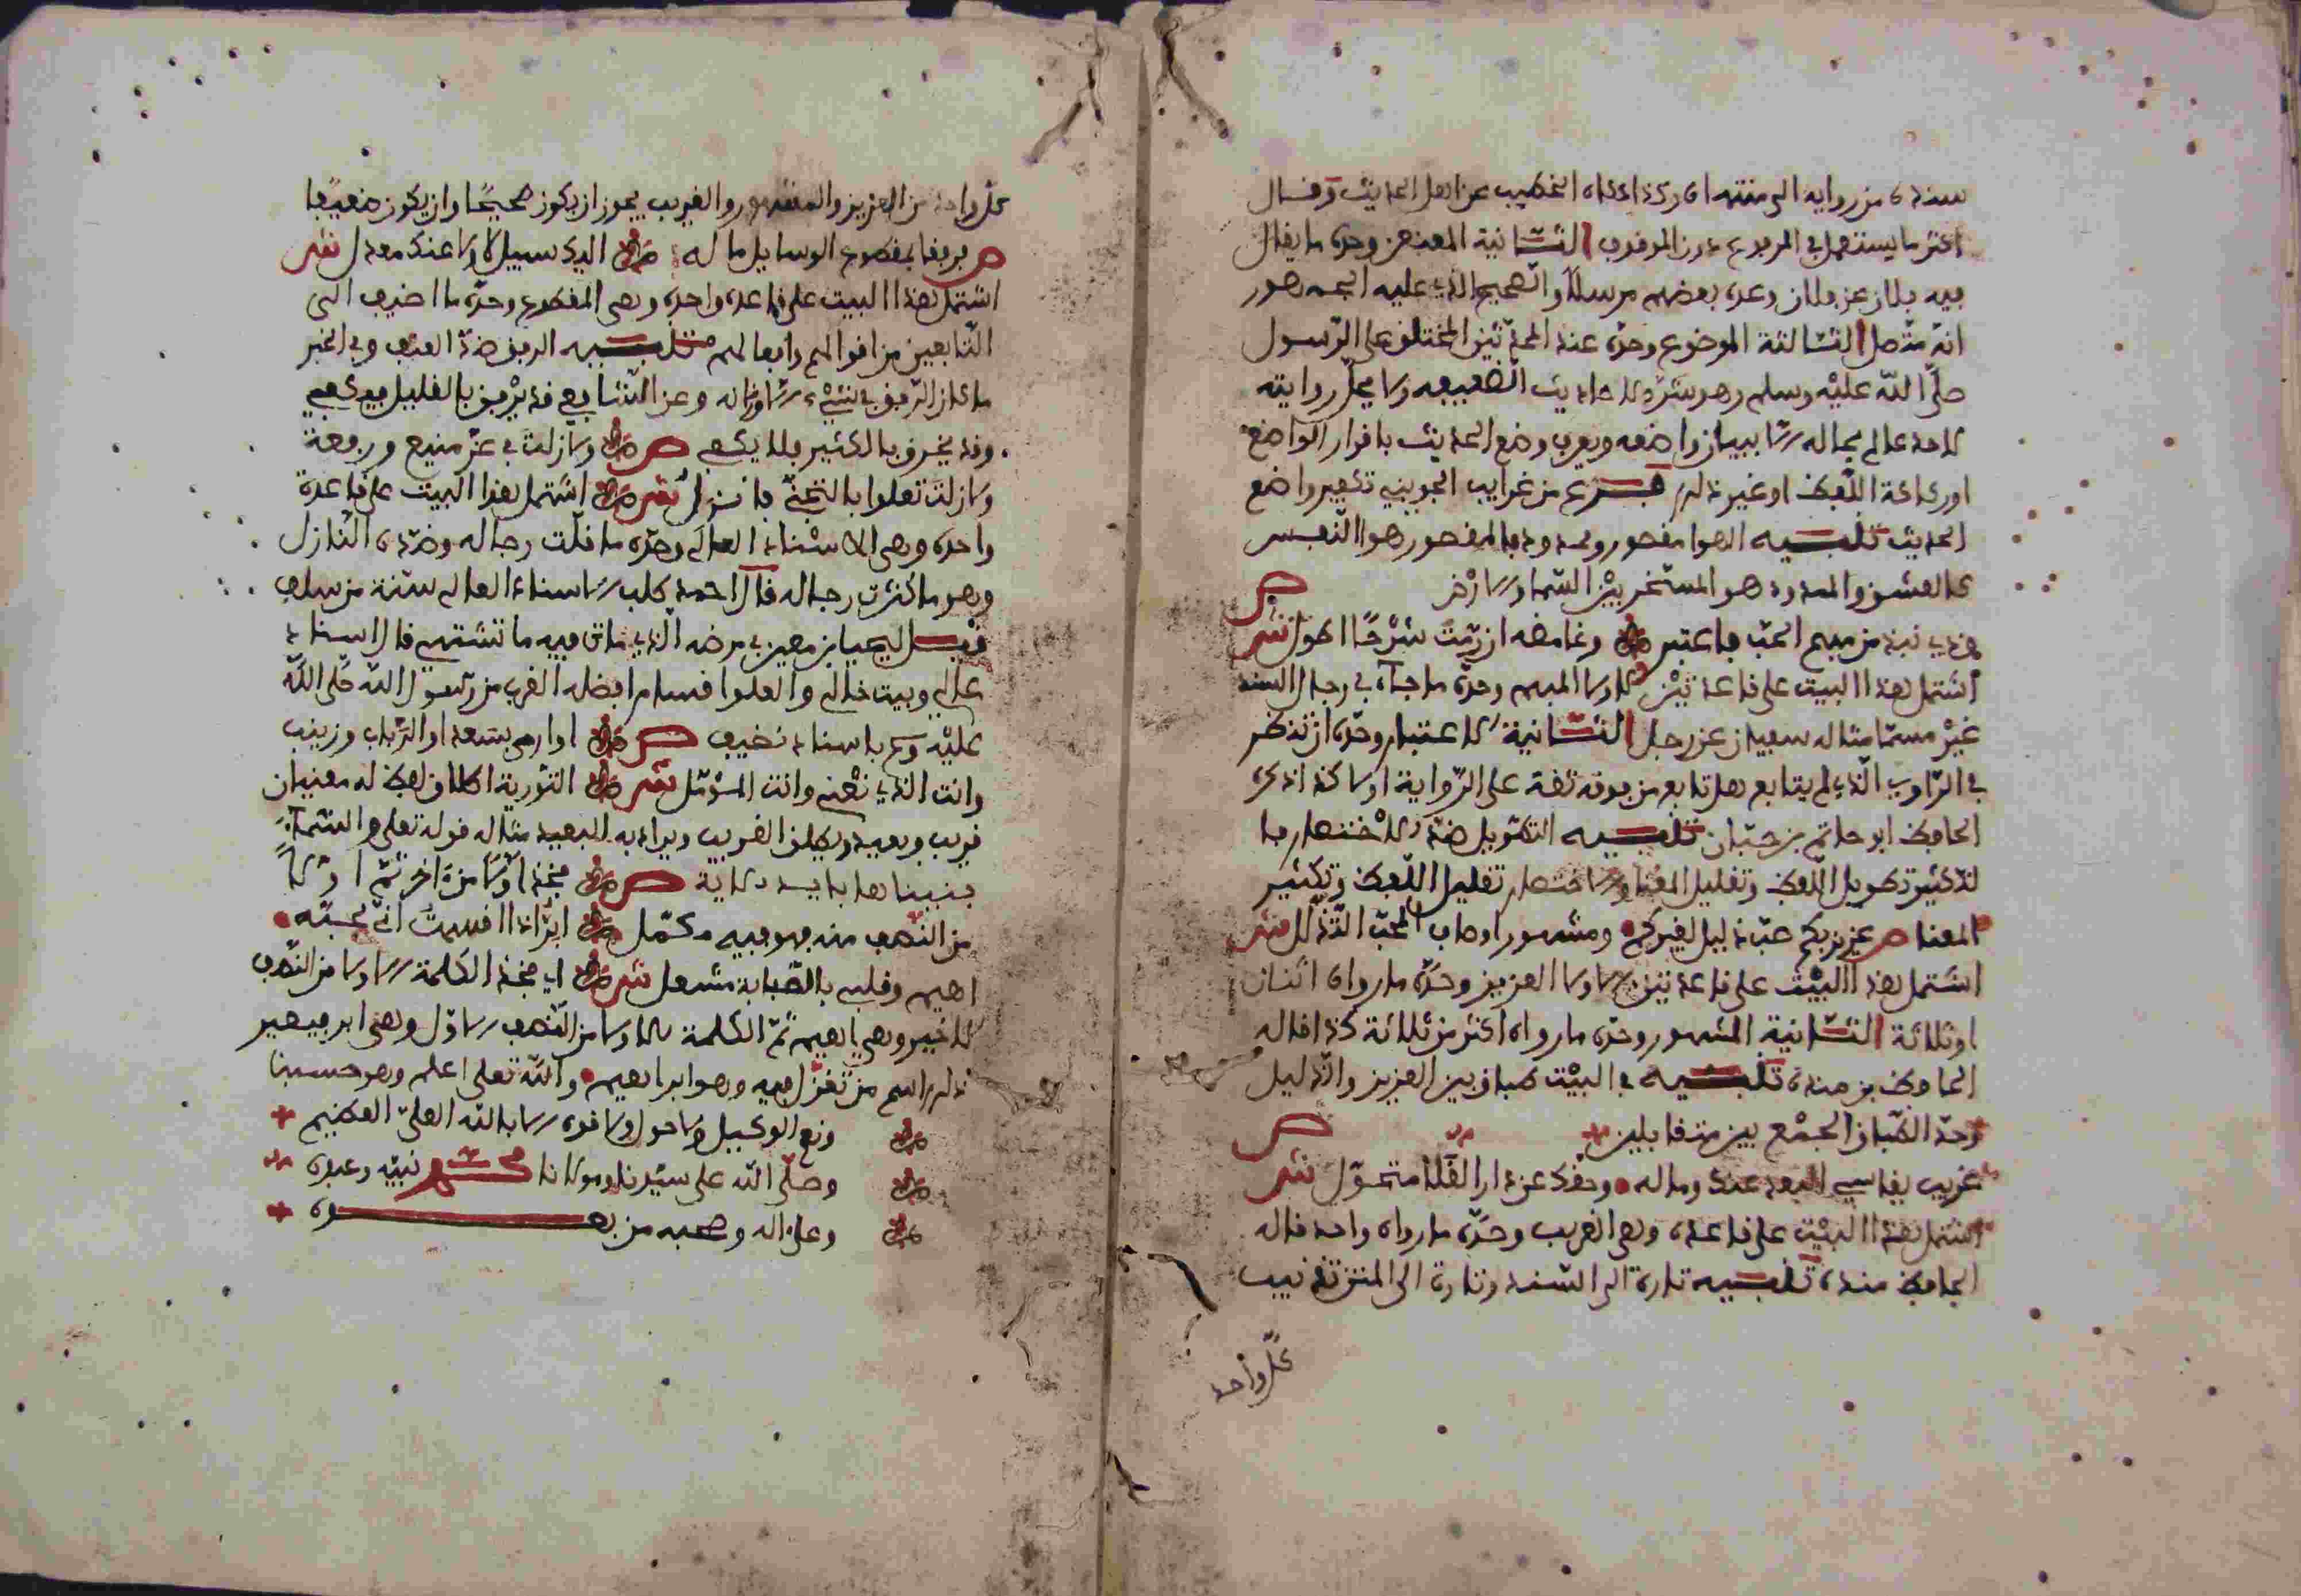 سنده من راويه الى منتهاه وكذا حكاه الخطيب عن اهل الحديث وقال
اكثر ما يستعمل في المرفوع دون الموقوف الثانية المعنعن وحده ما يقال
فيه فلان عن فلان وعده بعضهم مرسلا والصحيح الذي عليه الجمهور
انه متصل الثالثة الموضوع وحده عند المحدثين المختلق على الرسول
صلى الله عليه وسلم وهو شر الاحاديث الضعيفه ولا يحل روايته
لاحد عالم بحاله الا ببيان واضعه ويعرف وضع الحديث باقرار الواضع
او ركاكة اللفظ او غير ذلك فرع من غرايب الجويني تكفير واضع
الحديث تنبيه الهوا مقصور وممدود فالمقصور هوا النفس
كالعشق والممدود هو المستخر بين السما والارض ص
وذي نبذ من مبهم الحب فاعتبر وغامضه ان رمت شرحا اطول نش
اشتمل هذا البيت على قاعدتين الاولا المبهم وحده ما جآء في رجال السند
غير مسما مثاله سفيان عن رجل الثانية الاعتبار وحده ان تنظر
في الراوي الذي لم يتابع هل تابع من فوقه ثقة على الرواية او لا كذا ذكره
الحافظ ابو حاتم بن حبان تنبيه التطويل ضد الاختصار فا
لتكثير تطويل اللفظ وتقليل المعنا والاختصار تقليل اللفظ وتكثير
المعنا ص عزيز بكم صب ذليل لغيركم ومشهور اوصاف المحب التذلل نش
اشتمل هذا البيت على قاعدتين الاولا العزيز وحده ما رواه اثنان
او ثلاثة الثانية المشهور وحده ما رواه اكثر من ثلاثة كذا قاله
الحافظ بن منده تنبيه في البيت طباق بين العزيز والذليل
وحد الطباق الجمع بين متقابلين ص
غريب يقاسي البعد عنك وماله وحقك عن دار القلا متحول نش
اشتمل هذا البيت على قاعده وهي الغريب وحده ما رواه واحد قاله
الحافظ منده تنبيه تارة الى السند وتارة الى المتن تذنيب
كل واحد
كل واحد من العزيز والمشهور والغريب يجوز ان يكون صحيحا وان يكون ضعيفا
ص فرفقا بمقطوع الوسايل ماله اليك سبيل لا ولا عنك معدل نش
اشتمل هذا البيت على قاعدة واحدة وهي المقطوع وحده ما اضيف الى
التابعين من اقوالهم وافعالهم تنبيه الرفق ضد العنف وفي الخبر
ما كان الرفق في شيء الا زانه وعن الشافعي قد يرفق بالقليل فيكفي
وقد يخرق بالكثير فلا يكفي ص ولا زلت في عز منيع ورفعة
ولا زلت تعلوا بالتجني فانزل نش اشتمل هذا البيت على قاعدة
واحدة وهي الاسناد العالي وحده ما قلت رجاله وضده النازل
وهو ما كثرت رجاله قال احمد طلب الاسناد العالي سنة من سلف
قيل ليحيا بن معين في مرضه الذي مات فيه ما تشتهي قال اسناد
عالي وبيت خالي والعلوا اقسام افضله القرب من رسول الله صلى الله
عليه وسلم باسناد نظيف ص اوارى بسعد او الرباب وزينب
وانت الذي نعني وانت المؤمل نش التورية اطلاق لفظ له معنيان
قريب وبعيد ويطلق القريب ويراد به البعيد مثاله قوله تعلى والسماء
بنيناها بايد الاية ص فخذ اولا من اخر ثم اولا
من النصف منه فهو فيه مكمل ابر اذا اقسمت اني بحبه
اهيم وقلبي بالصبابة مشعل نش اي فخذ الكلمة الاولا من النصف
الاخير وهي اهيم ثم الكلمة الاولا من النصف الاول وهي ابر فيصير
ذلك اسم من تغزل فيه وهو ابراهيم والله تعلى اعلم وهو حسبنا
ونعم الوكيل ولا حول ولا قوة الا بالله العلي العظيم
وصلى الله على سيدنا ومولانا محمد نبيه وعبده
وعلى اله وصحبه من بعده